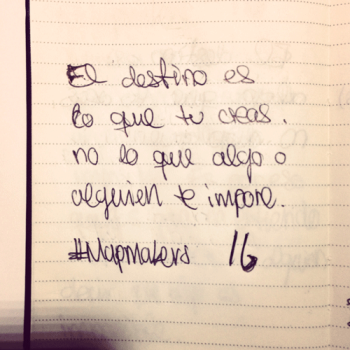 El destino es
lo que tu creas.
no lo que algo o
alguien te impone.
#Mapmakers 16